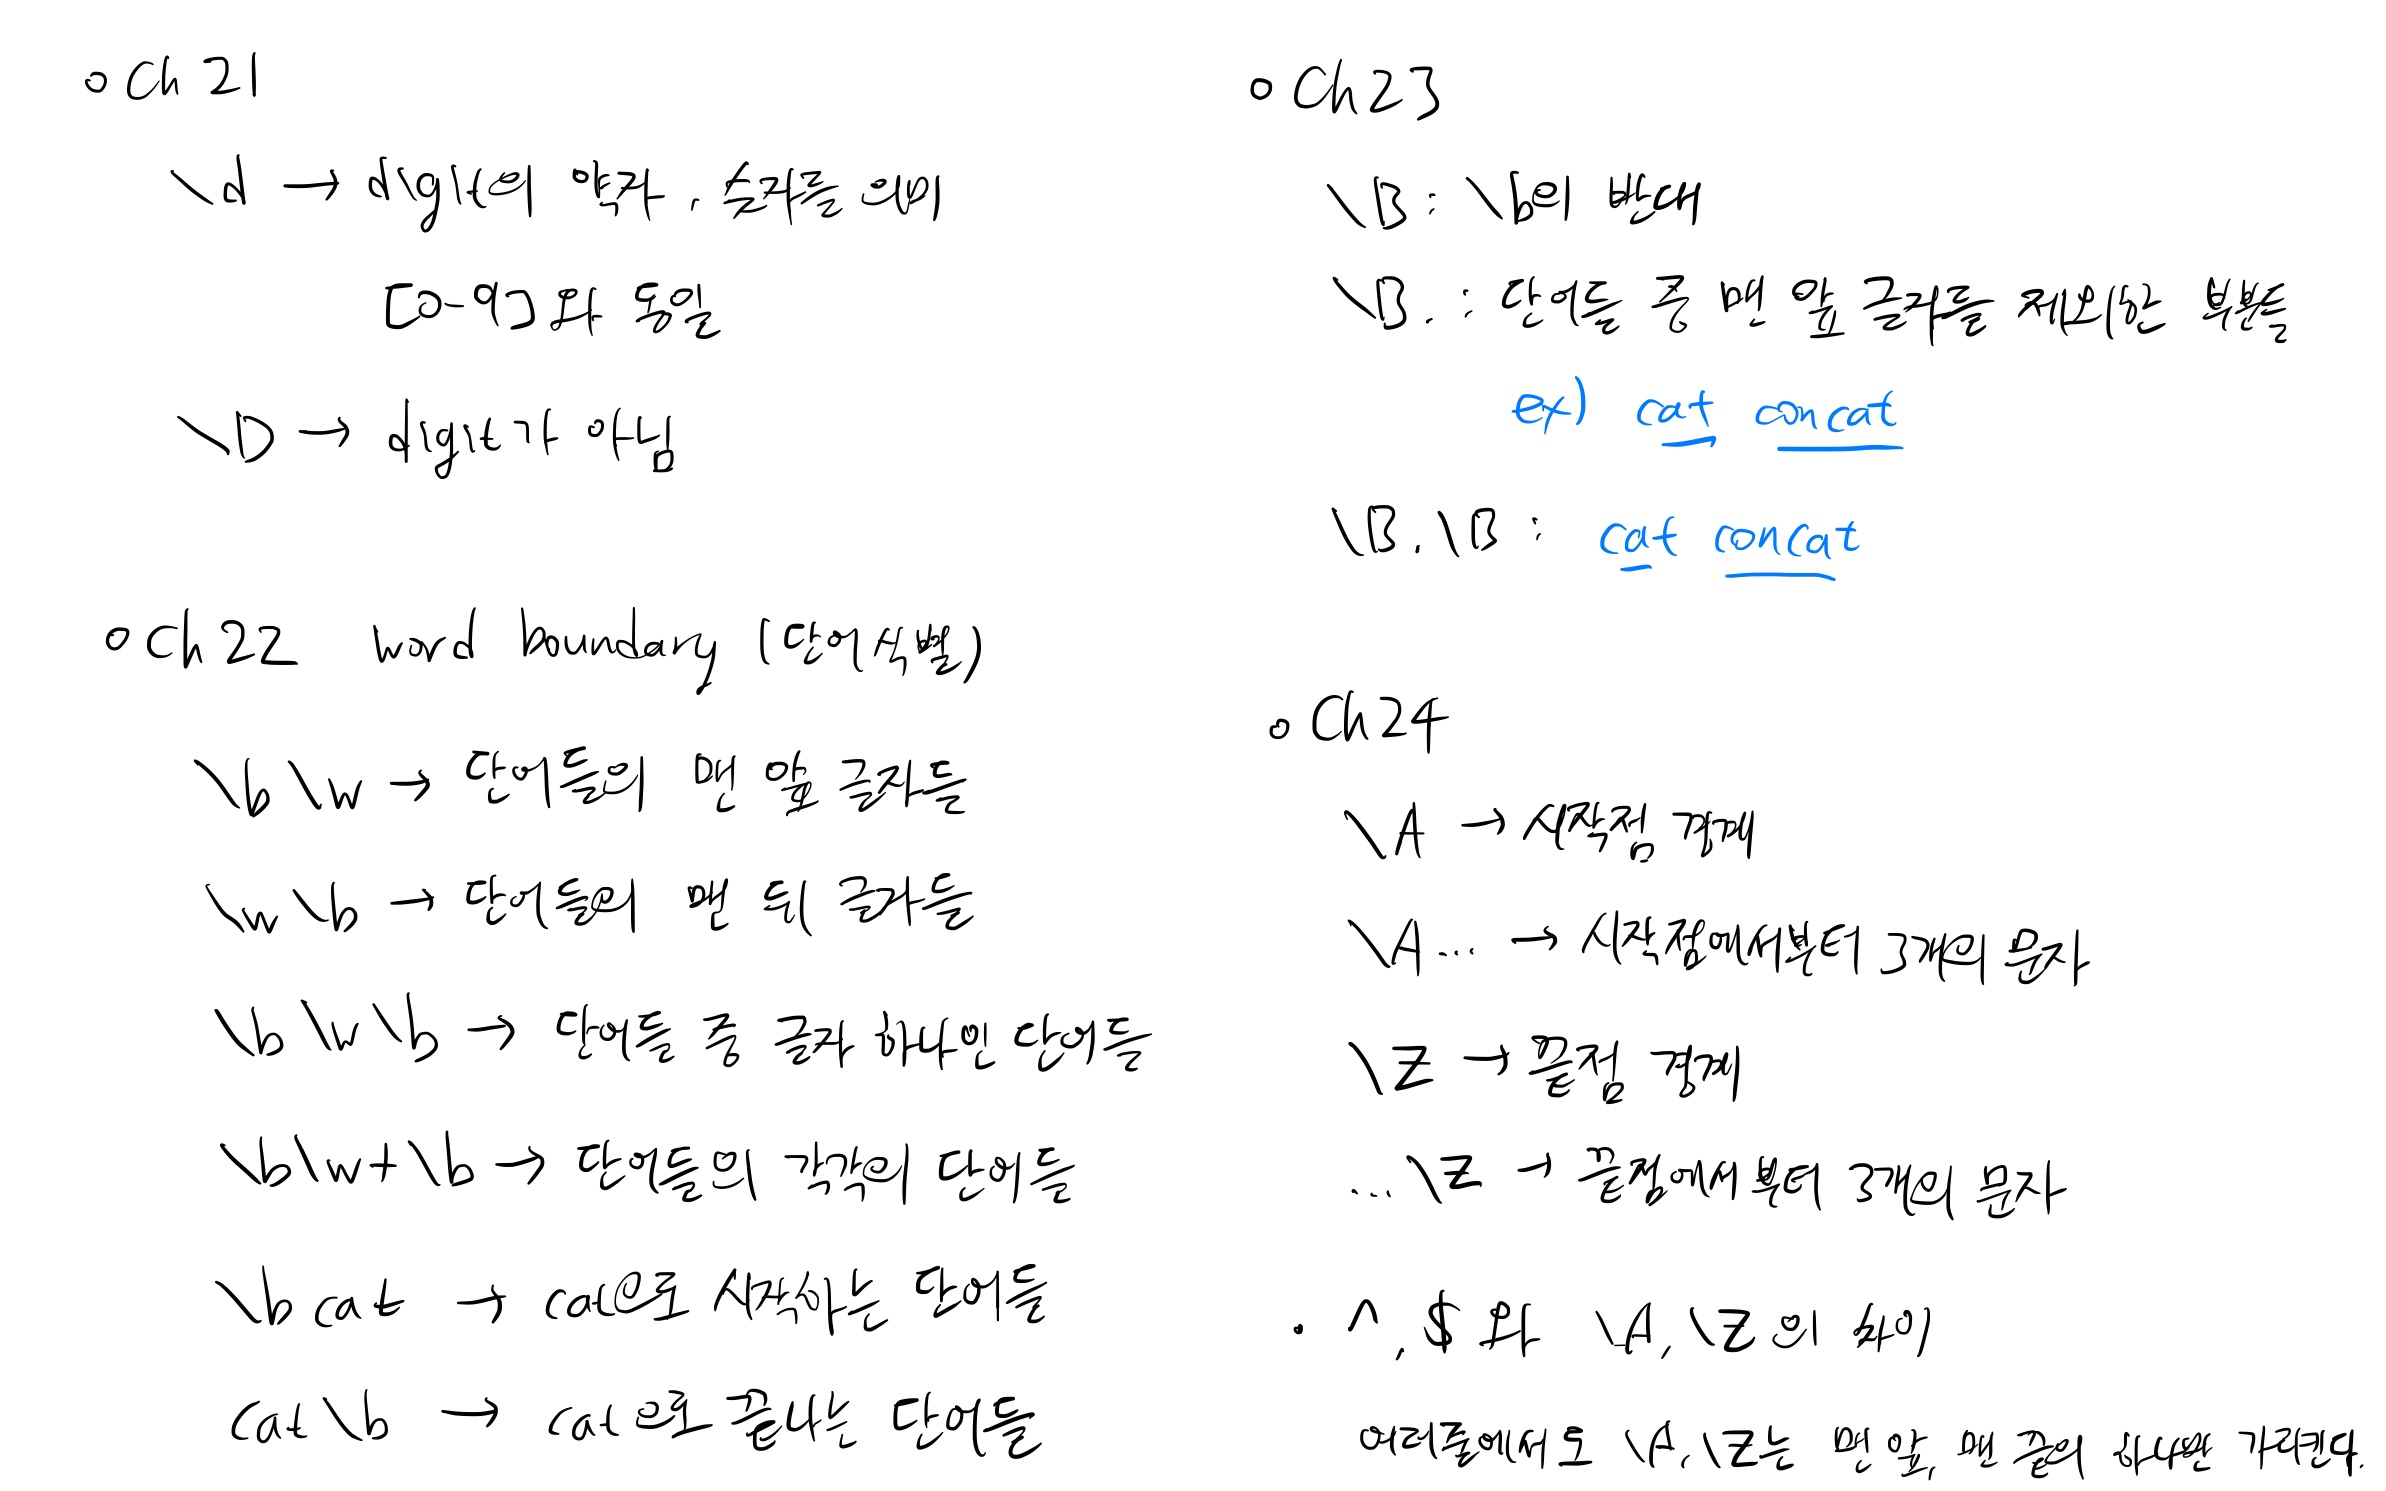 ◦ Ch 21
\d → digit의 약자, 숫자들 의미
[0-9]와 동일
\D → digit가 아님
◦ Ch 22 word boundary (단어식별)
\b \w → 단어들의 맨 앞 글자들
\w \b → 단어들의 맨 뒤 글자들
\b \w \b → 단어들 중 글자 하나인 단어들
\b\w+\b → 단어들의 각각의 단어들
\b cat → cat으로 시작하는 단어들
cat \b → cat으로 끝나는 단어들
◦ Ch 23
\B : \b의 반대
\B. : 단어들 중 맨 앞 글자들 제외한 부분들
ex) cat concat
\B.\B : cat concat
◦ Ch 24
\A → 시작점 경계
\A... → 시작점에서부터 3개의 문자
\Z → 끝점 경계
...\Z → 끝점에서부터 3개의 문자
· ^, $와 \A, \Z의 차이
여러줄에서도 \A, \Z는 맨 앞, 맨 끝의 하나만 가리킨다.